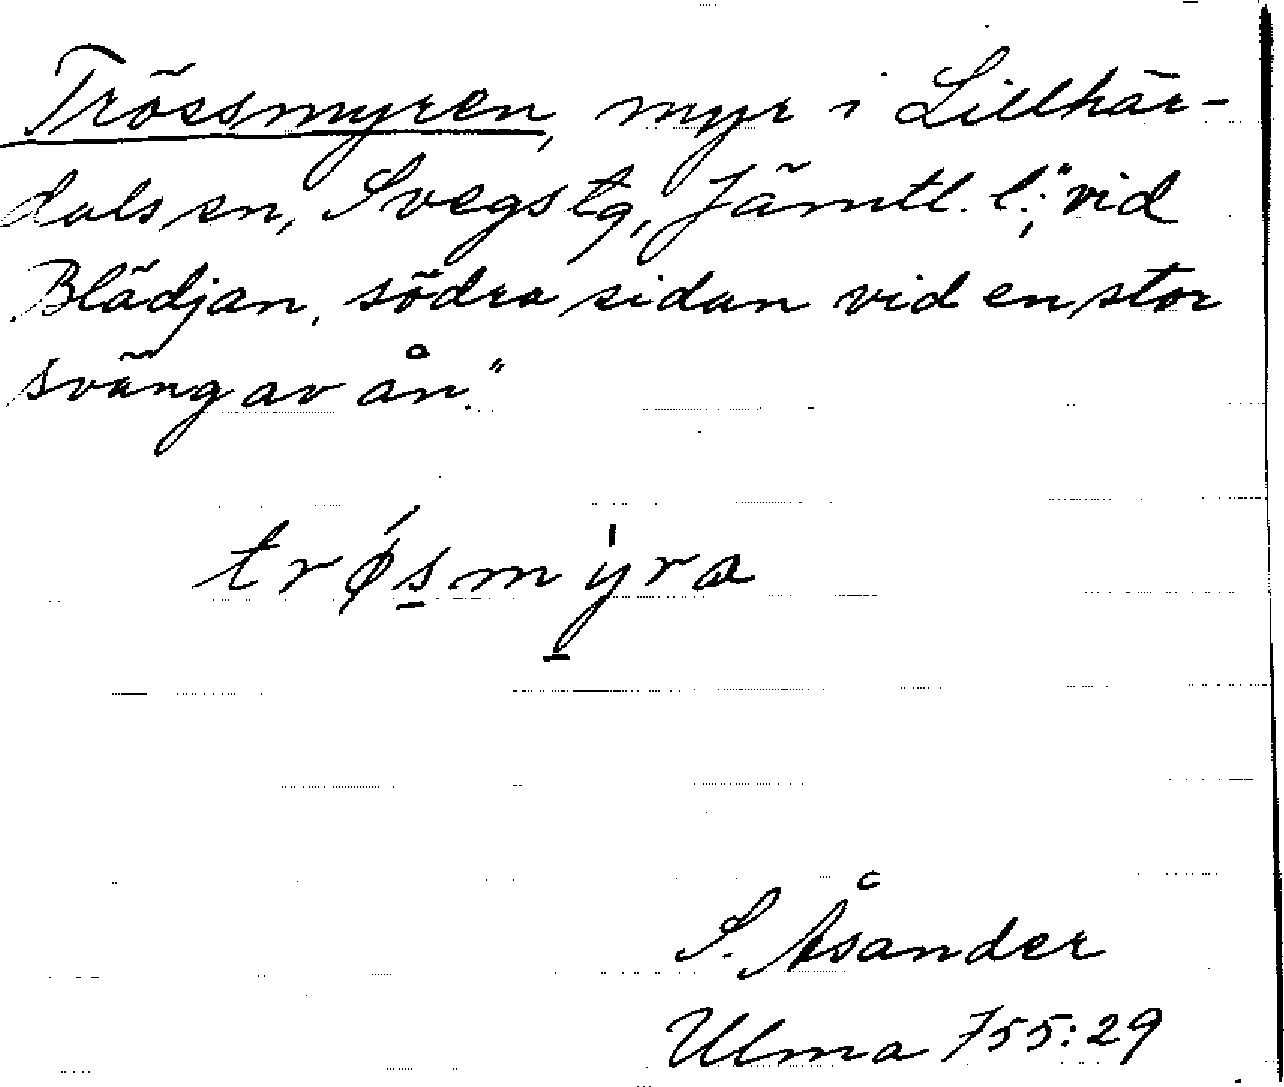 Trössmyren, myr i Lillhär-
dals sn, Svegs tg, Jämtl. l.; "vid
Blädjan, södra sidan vid en stor
sväng av ån."
trǿsmy̍ra
S. Åsander
Ulma 755:29